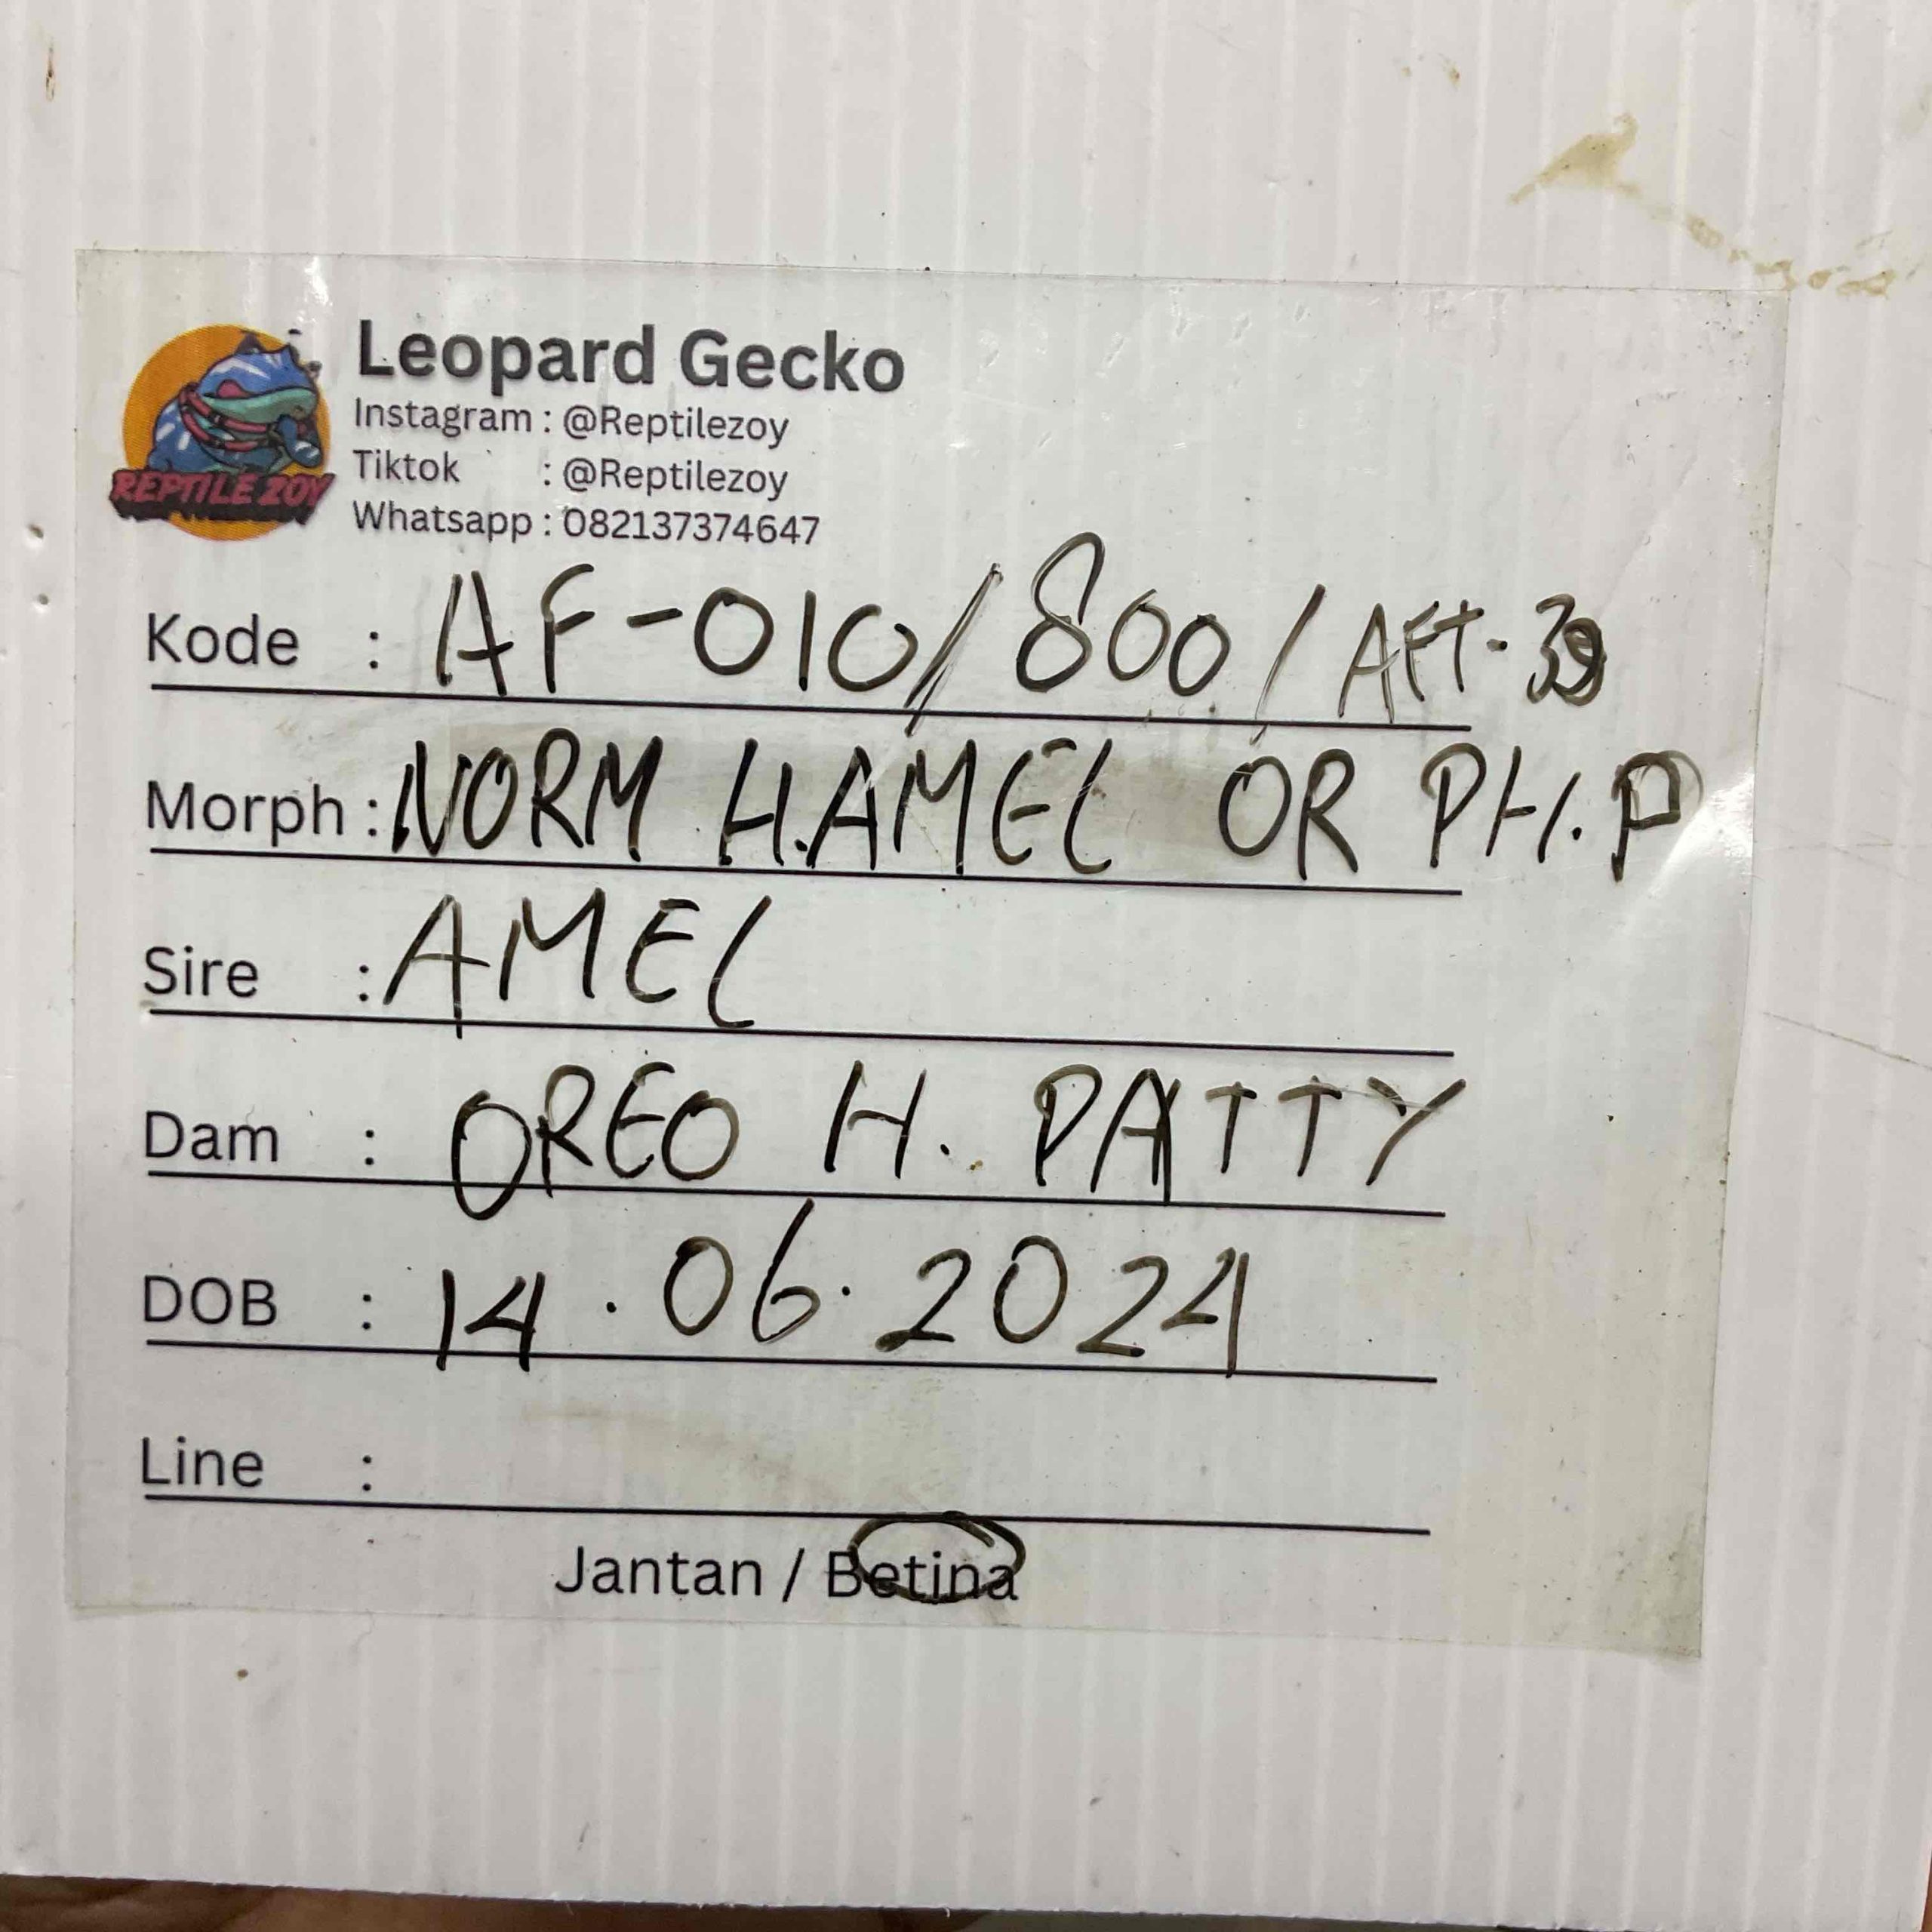 Leopard Gecko
Instagram : @Reptilezoy
Tiktok : @Reptilezoy
Whatsapp : 082137374647
REPTILE ZOY
Kode : AF-010/800/AFT-39
Morph : NORM H.AMEL OR PH.P
Sire : AMEL
Dam : OREO H. PATTY
DOB : 14.06.2024
Line :
Jantan / Betina